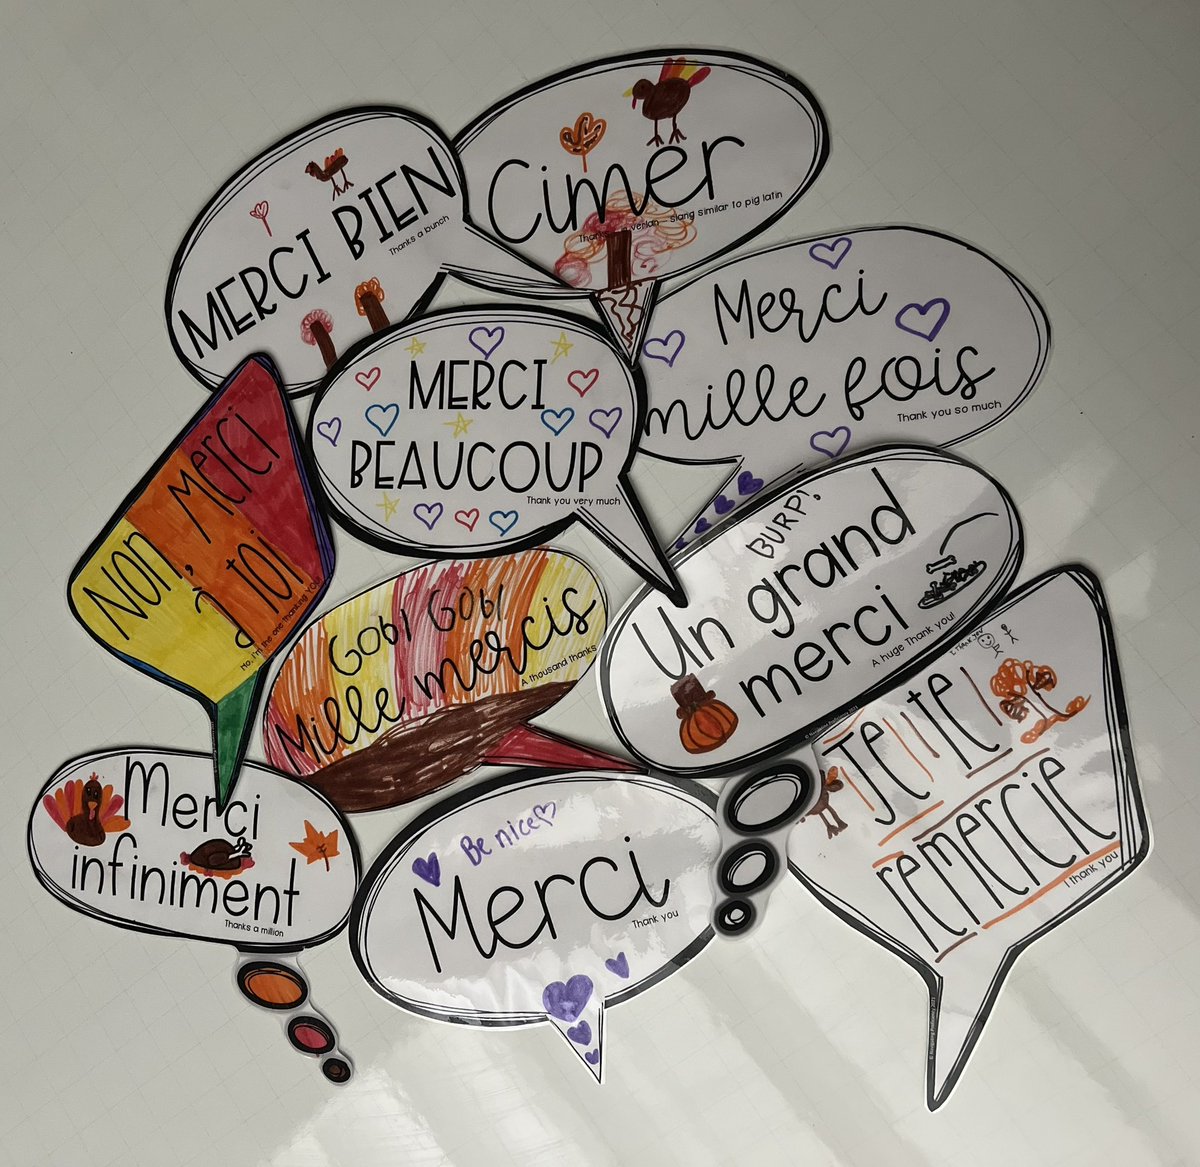 MERCI BIEN
Thanks a bunch
Cimer
verlan - slang similar to pig latin
Merci
mille fois
Thank you so much
MERCI
BEAUCOUP
Thank you very much
Non, Merci
à toi
No, I'm the one thanking YOU
Gobl Gobl
Mille mercis
A thousand thanks
BURP!
Un grand
merci
A huge Thank you!
I THANK YOU
Je te
remercie
I thank you
Merci
infiniment
Thanks a million
Be nice
Merci
Thank you